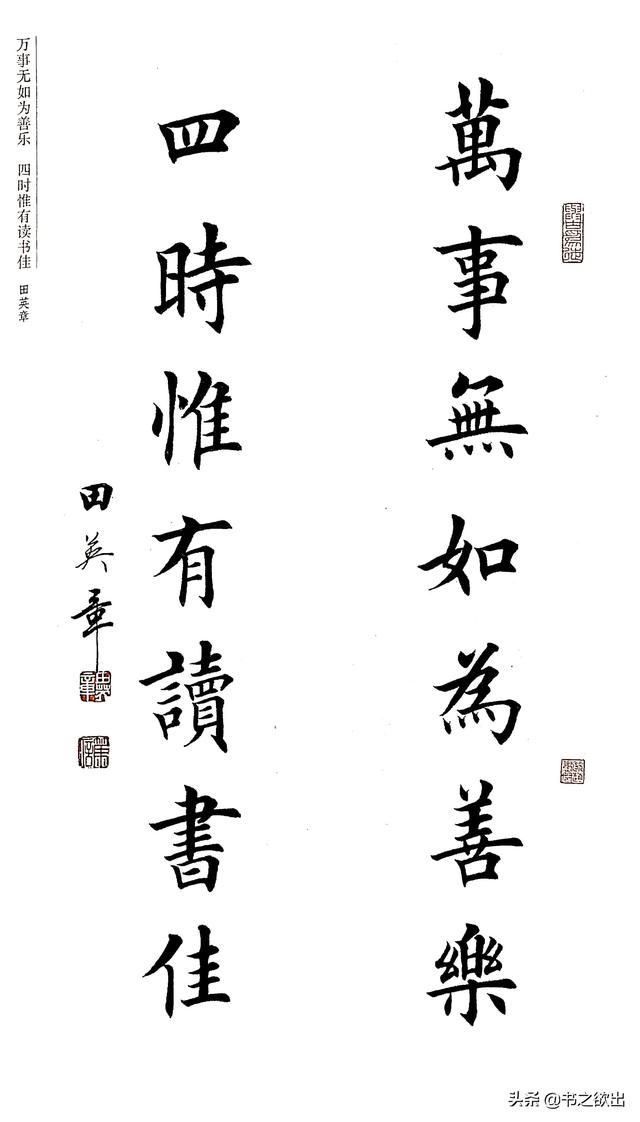 萬事無如為善樂
四時惟有讀書佳
田英章
万事无如为善乐 四时惟有读书佳 田英章
头条 @书之欲出